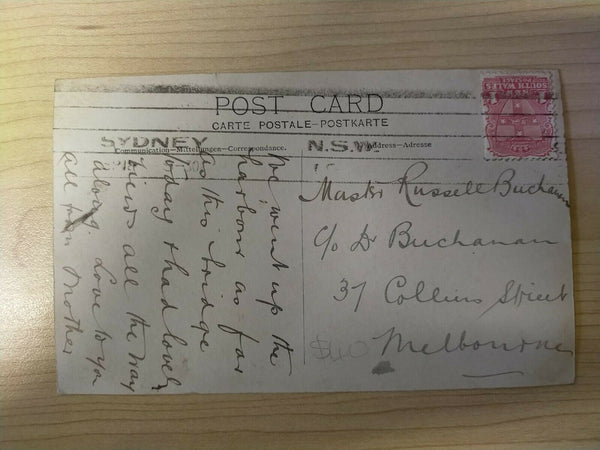 POST CARD
CARTE POSTALE-POSTKARTE
SYDNEY N.S.W.
Communication-Mitteilungen-Correspondance.
Address-Adresse
We went up the
harbour as far
as this bridge
today & had lovely
views all the way
along. Love to you
all from Mother
Master Russell Buchanan
c/o Dr Buchanan
37 Collins Street
Melbourne
$40
SOUTH WALES